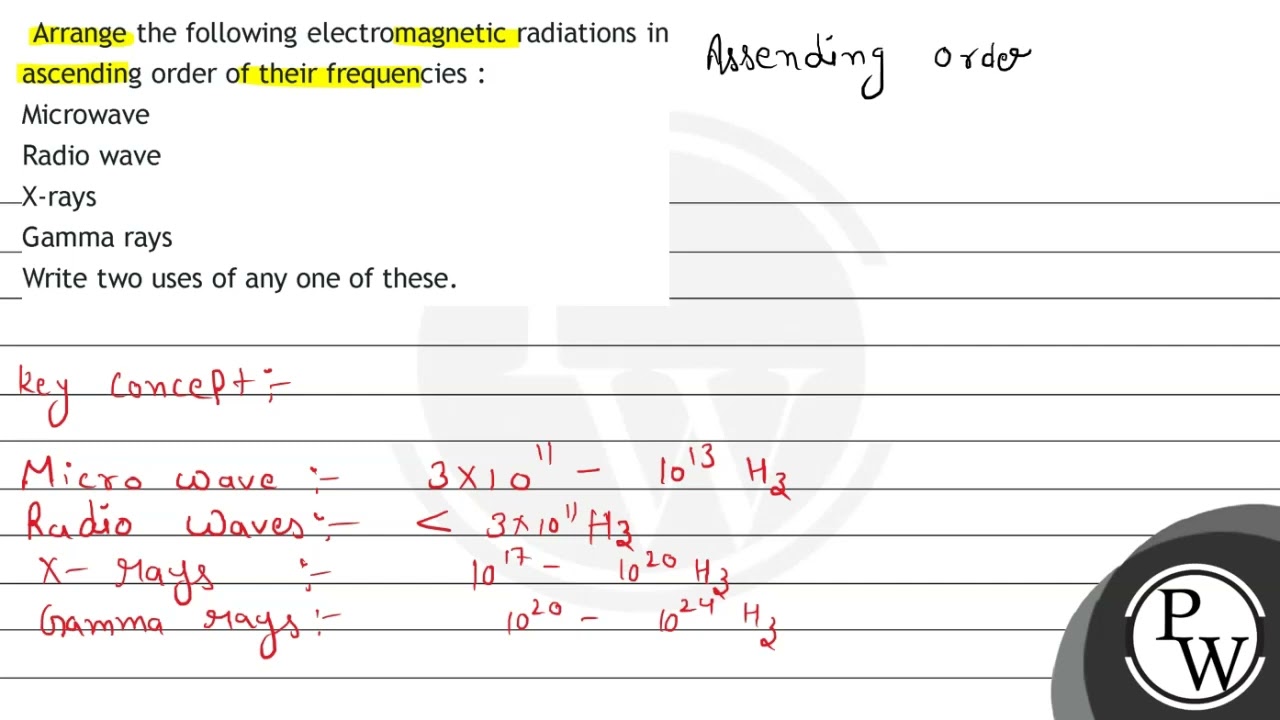 Arrange the following electromagnetic radiations in
ascending order of their frequencies :
Microwave
Radio wave
X-rays
Gamma rays
Write two uses of any one of these.
Assending order
key concept :-
Micro wave :- 3 × 10¹¹ - 10¹³ Hz
Radio waves :- < 3 × 10¹¹ Hz
X- rays :- 10¹⁷ - 10²⁰ Hz
Gamma rays :- 10²⁰ - 10²⁴ Hz
P
W